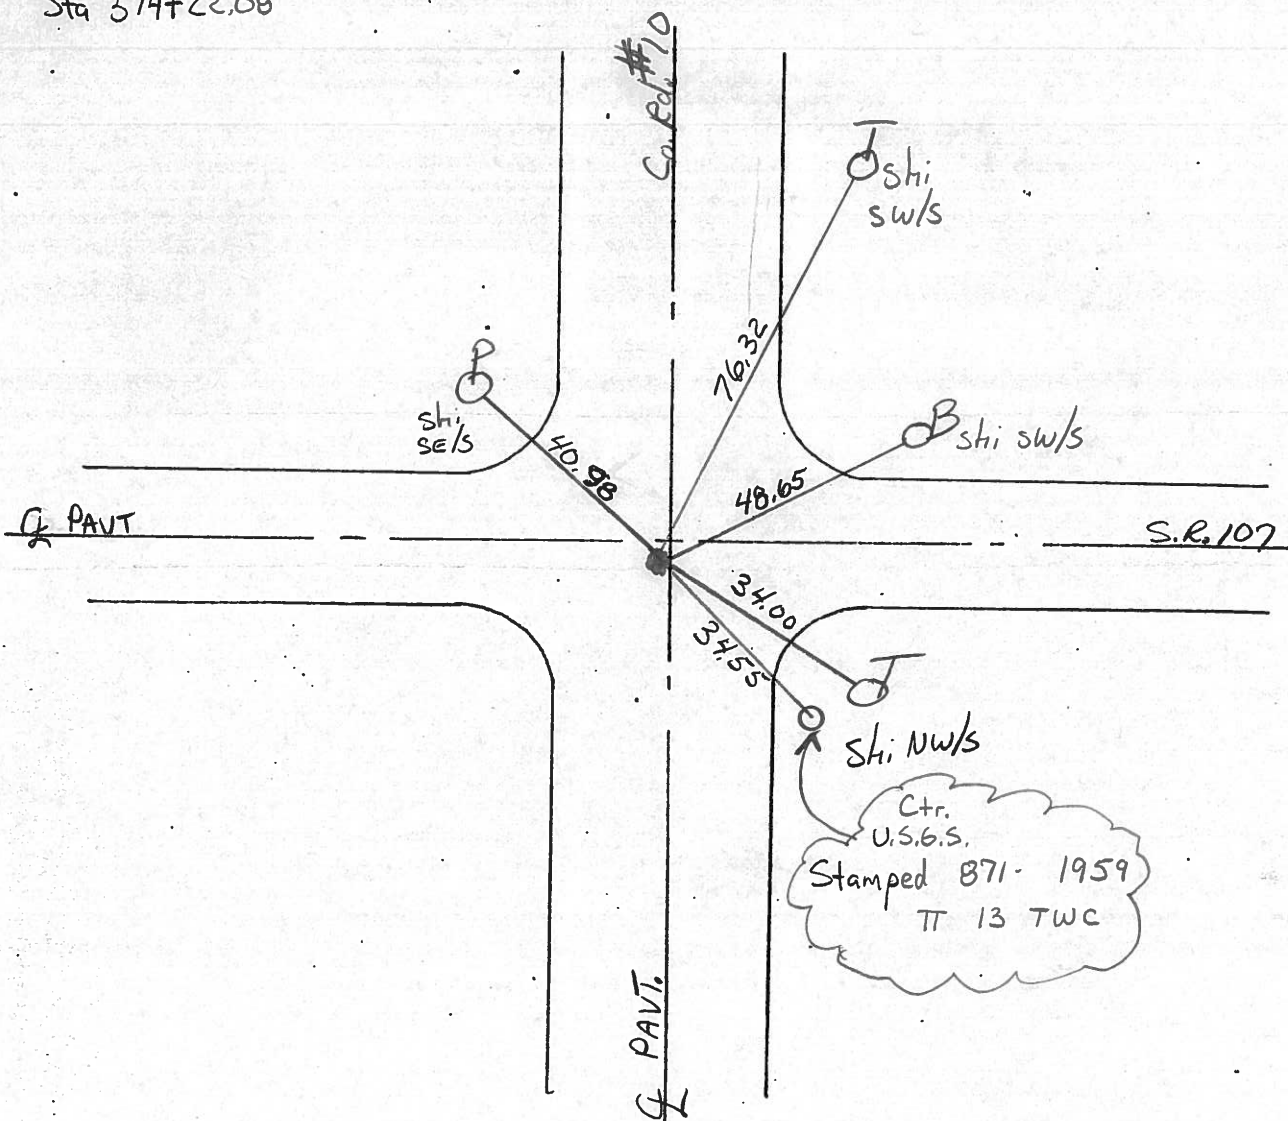 Sta 574+22.08
Co. Rd. #10
T
shi
SW/S
76.32
P
shi
SE/S
40.98
B shi SW/S
48.65
℄ PAVT
S.R. 107
34.00
34.55
T
Shi NW/S
Ctr.
U.S.G.S.
Stamped 871- 1959
TT 13 TWC
℄ PAVT.